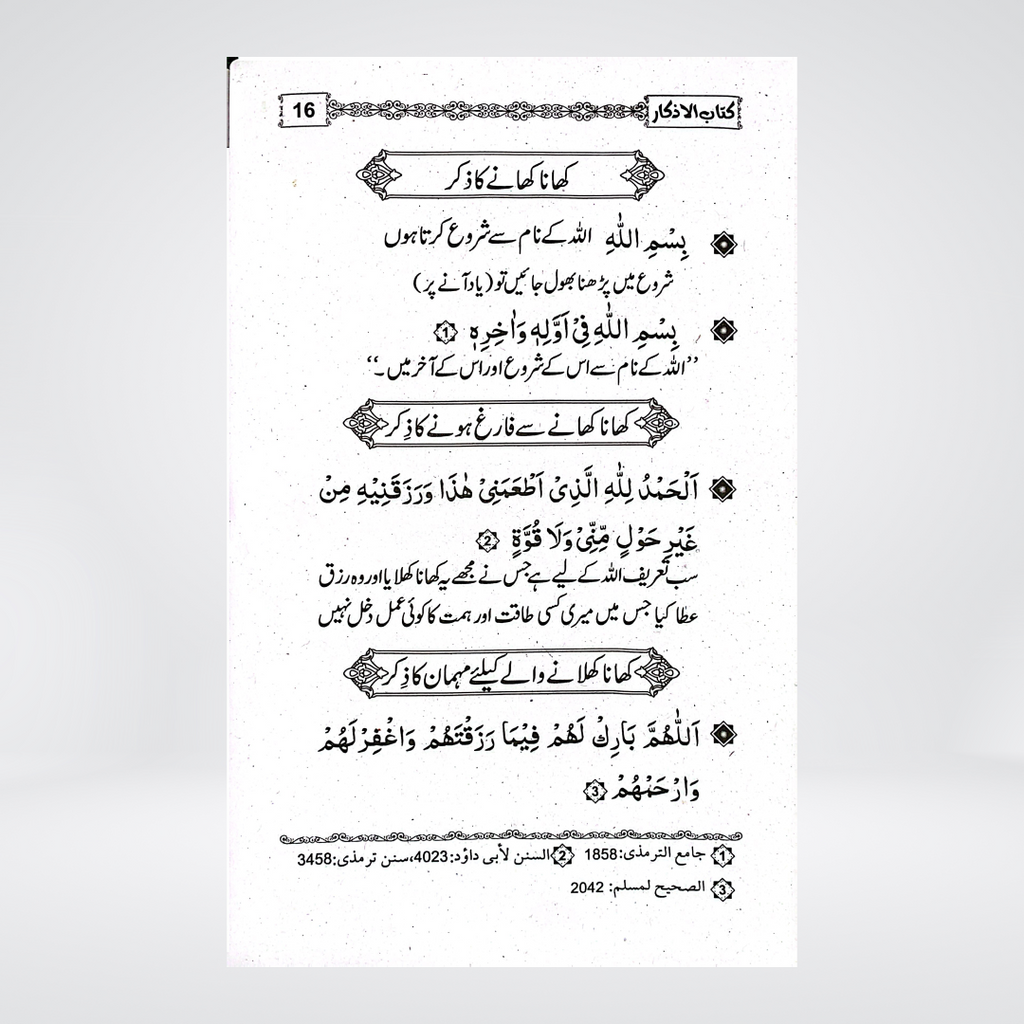 کتاب الاذکار 16
کھانا کھانے کا ذکر
بِسْمِ اللّٰهِ اللہ کے نام سے شروع کرتا ہوں
شروع میں پڑھنا بھول جائیں تو (یاد آنے پر)
بِسْمِ اللّٰهِ فِیْ اَوَّلِهٖ وَاٰخِرِهٖ 1
’’اللہ کے نام سے اس کے شروع اور اس کے آخر میں۔‘‘
کھانا کھانے سے فارغ ہونے کا ذِکر
اَلْحَمْدُ لِلّٰهِ الَّذِیْ اَطْعَمَنِیْ هٰذَا وَرَزَقَنِیْهِ مِنْ
غَیْرِ حَوْلٍ مِّنِّیْ وَلَا قُوَّةٍ 2
سب تعریف اللہ کے لیے ہے جس نے مجھے یہ کھانا کھلایا اور وہ رزق
عطا کیا جس میں میری کسی طاقت اور ہمت کا کوئی عمل دخل نہیں
کھانا کھلانے والے کیلئے مہمان کا ذِکر
اَللّٰهُمَّ بَارِكْ لَهُمْ فِیْمَا رَزَقْتَهُمْ وَاغْفِرْلَهُمْ
وَارْحَمْهُمْ 3
1 جامع الترمذی: 1858 2 السنن لأبی داؤد: 4023، سنن ترمذی: 3458
3 الصحیح لمسلم: 2042